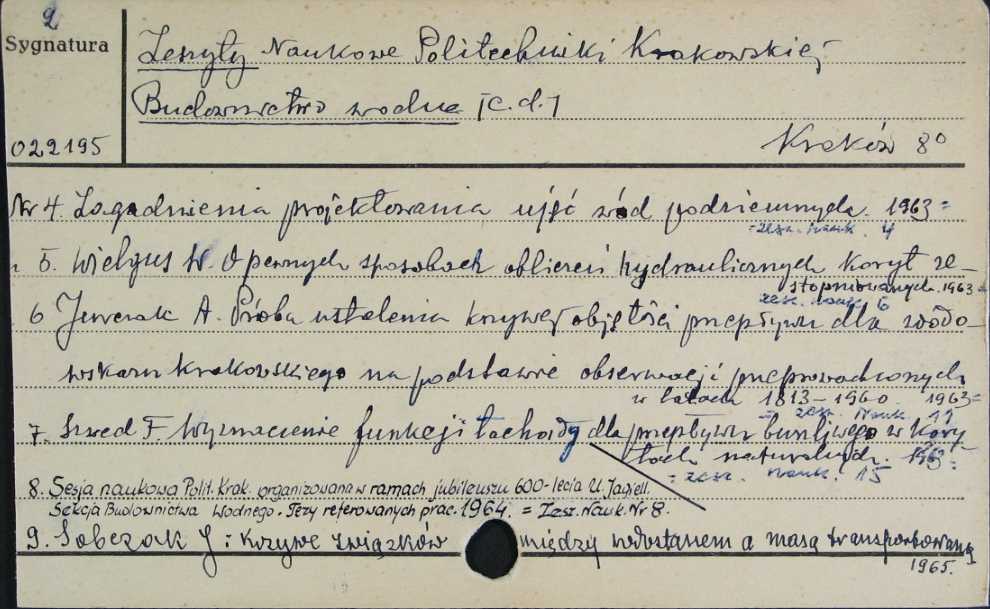 2
Sygnatura
Zeszyty Naukowe Politechniki Krakowskiej
Budownictwo wodne [c.d.]
022195
Kraków 8°
Nr 4. Zagadnienia projektowania ujęć wód podziemnych. 1963 =
= zesz. nauk. 4
5. Wielgus W. O pewnych sposobach obliczeń hydraulicznych koryt ze-
stopniowanych. 1963 =
zesz. nauk. 6
6 Jurczak A. Próba ustalenia krzywej objętości przepływu dla wodo-
wskazu krakowskiego na podstawie obserwacji przeprowadzonych
w latach 1813-1960. 1963 =
= zesz. nauk. 11
7. Szwed F. Wyznaczenie funkcji tachoidy dla przepływu burzliwego w kory
tach naturalnych. 1963 =
= zesz. nauk. 15
8. Sesja naukowa Polit. Krak. organizowana w ramach jubileuszu 600-lecia U. Jagiell.
Sekcja Budownictwa Wodnego. Tezy referowanych prac. 1964. = Zesz. Nauk. Nr 8.
9. Sobczak J: Krzywe związków między wodostanem a masą transportowaną
1965.